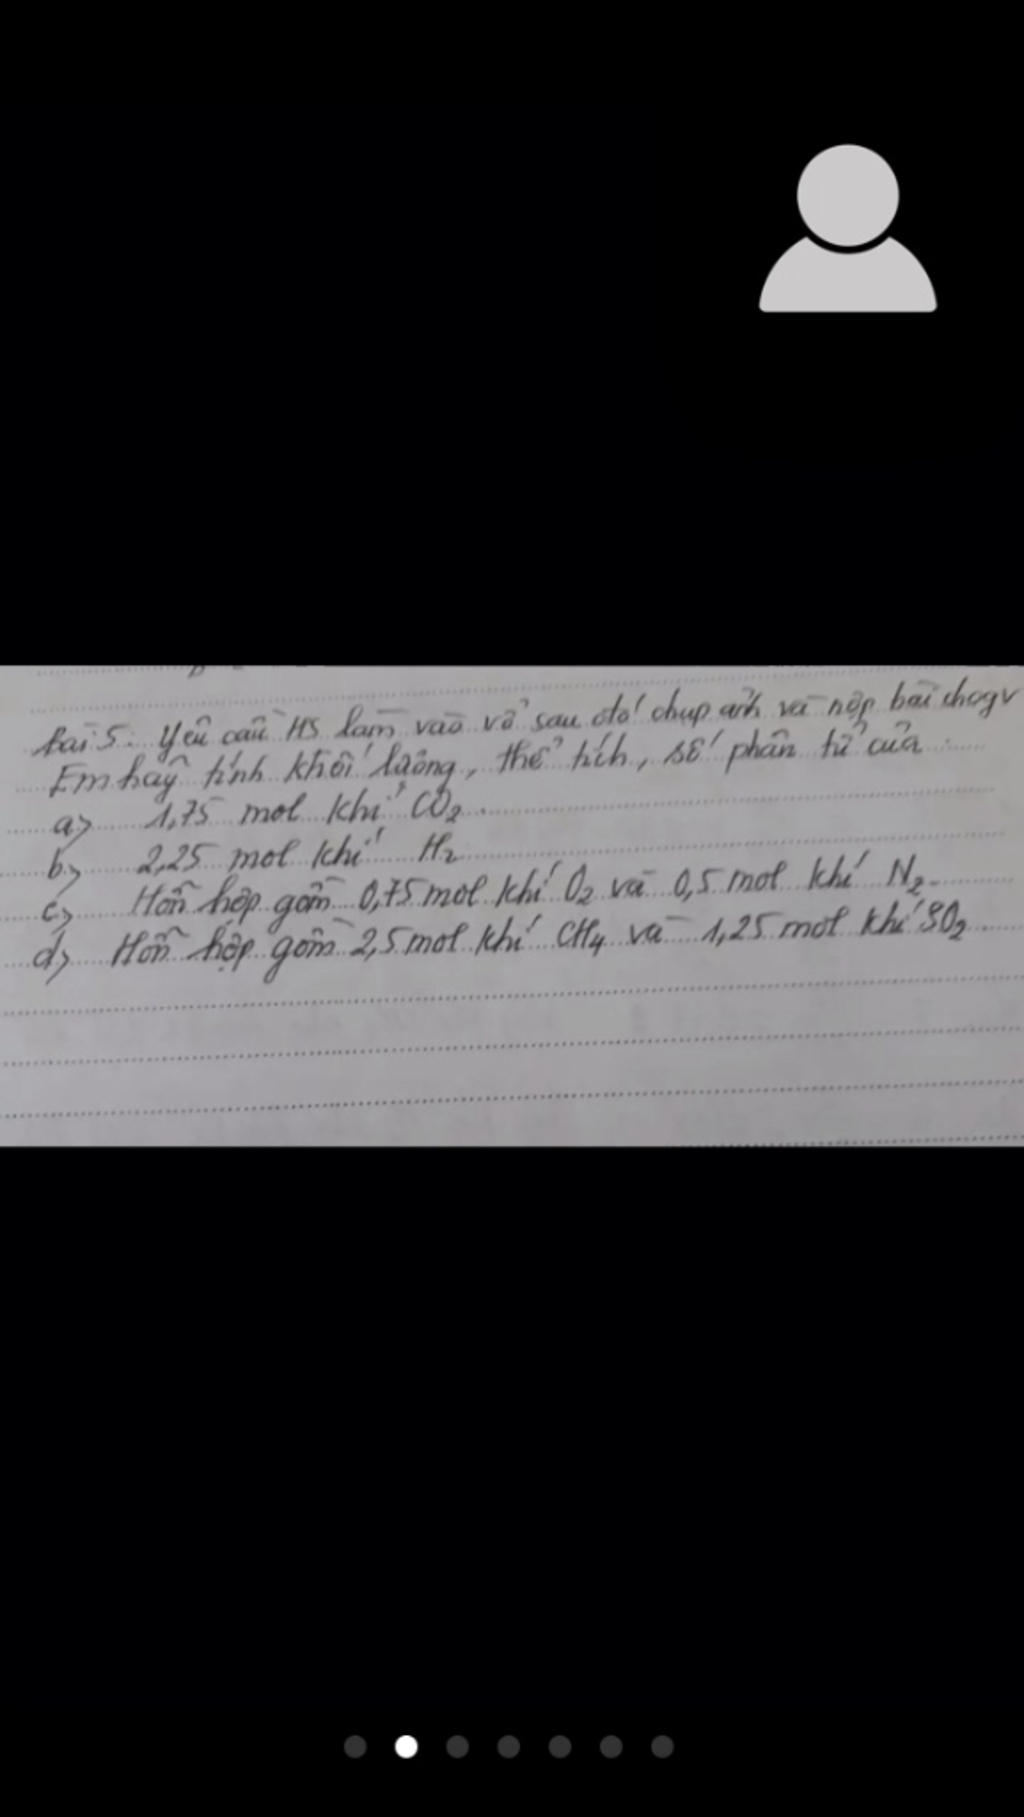 Bài 5: Yêu cầu HS làm vào vở sau đó chụp ảnh và nộp bài cho gv
Em hãy tính khối lượng, thể tích, số phân tử của
a) 1,75 mol khí CO2.
b) 2,25 mol khí H2
c) Hỗn hợp gồm 0,75 mol khí O2 và 0,5 mol khí N2.
d) Hỗn hợp gồm 2,5 mol khí CH4 và 1,25 mol khí SO2.